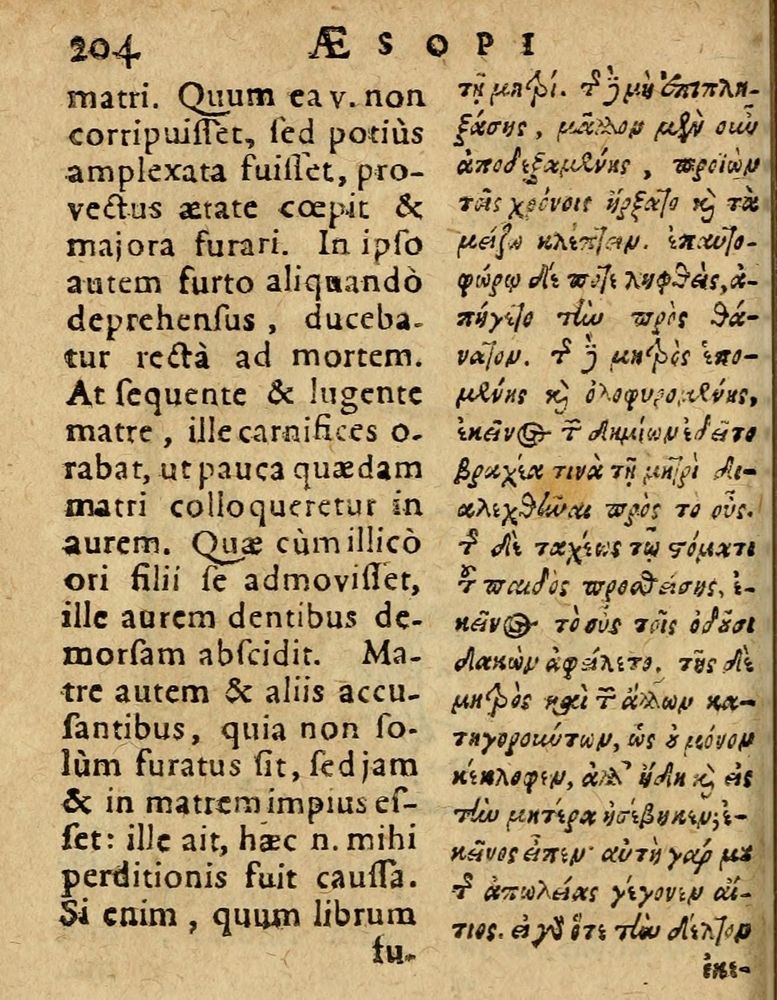 204 ÆSOPI
matri. Quum ea v. non
corripuiſſet, ſed potiùs
amplexata fuiſſet, pro-
vectus ætate cœpit &
majora furari. In ipſo
autem furto aliquandò
deprehenſus, duceba-
tur rectà ad mortem.
At ſequente & lugente
matre, ille carnifices o-
rabat, ut pauca quædam
matri colloqueretur in
aurem. Quæ cùm illicò
ori filii ſe admoviſſet,
ille aurem dentibus de-
morſam abſcidit. Ma-
tre autem & aliis accu-
ſantibus, quia non ſo-
lùm furatus ſit, ſed jam
& in matrem impius eſ-
ſet: ille ait, hæc n. mihi
perditionis fuit cauſſa.
Si enim, quum librum
fu-
τῇ μητρί. τῆς δὲ μὴ ἐπιπλη-
ξάσης, μᾶλλον μὲν οὖν
ἀποδεξαμένης, προϊὼν
τοῖς χρόνοις ἤρξατο καὶ τὰ
μείζω κλέπτειν. ἐπαυτο-
φώρῳ δέ ποτε ληφθεὶς, ἀ-
πήγετο τὴν πρὸς θά-
νατον. τῆς δὲ μητρὸς ἑπο-
μένης καὶ ὀλοφυρομένης,
ἐκεῖνος τῶν δημίων ἐδεῖτο
βραχέα τινὰ τῇ μητρὶ δι-
αλεχθῆναι πρὸς το οὖς.
τῆς δὲ ταχέως τῷ στόματι
τοῦ παιδὸς προσθείσης, ἐ-
κεῖνος τὸ οὖς τοῖς ὀδοῦσι
δακὼν ἀφείλετο. τῆς δὲ
μητρὸς καὶ τῶν ἄλλων κα-
τηγορούντων, ὡς οὐ μόνον
κέκλοφεν, ἀλλ' ἤδη καὶ εἰς
τὴν μητέρα ἠσέβηκεν; ἐ-
κεῖνος εἶπεν· αὐτὴ γάρ μου
τῆς ἀπωλείας γέγονεν αἴ-
τιος. εἰ γὰρ ὅτε τὴν δέλτον
ἐκε-